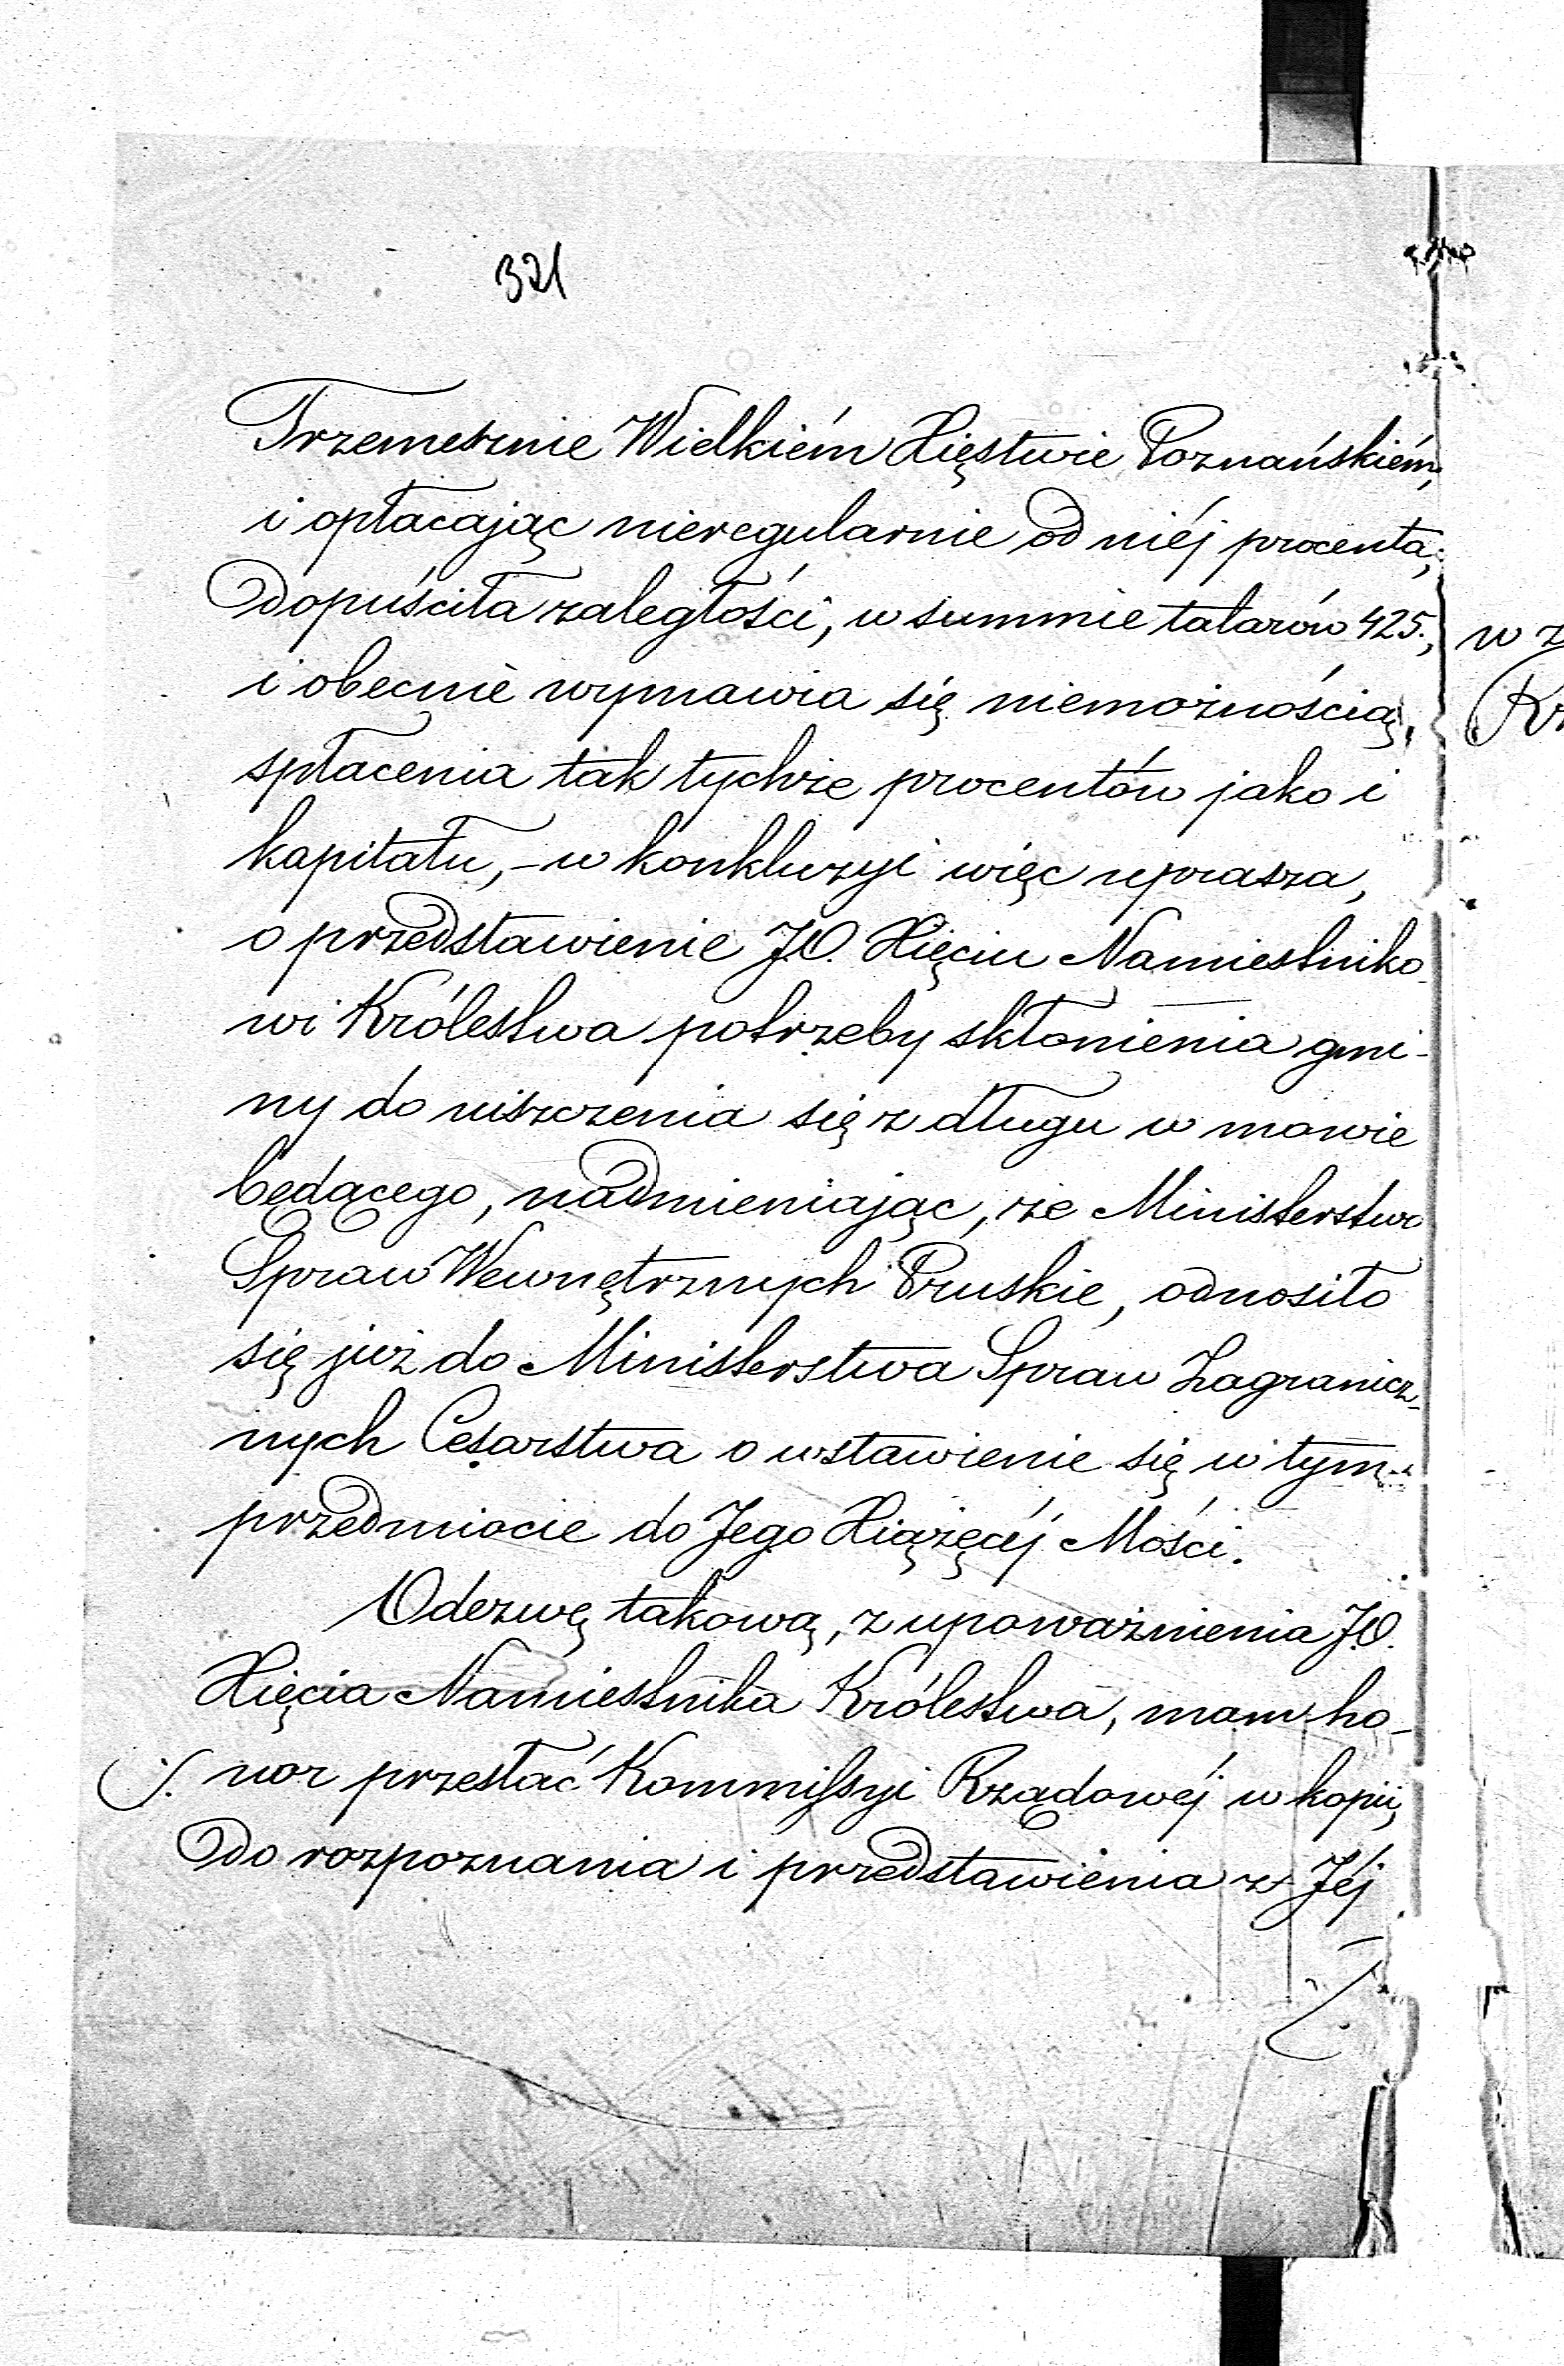 321
Trzemesznie Wielkiém Xięstwie Poznańskiém,
i opłacając nieregularnie od niéj procenta,
dopuściła zaległości, w summie talarów 425.,
i obecnie wymawia się niemożnością,
spłacenia tak tychże procentów jako i
kapitału, – w konkluzyi więc uprasza,
o przedstawienie J.O. Xięciu Namiestniko-
wi Królestwa potrzeby skłonienia gmi-
ny do uiszczenia się z długu w mowie
będącego, nadmieniając, że Ministerstwo
Spraw Wewnętrznych Pruskie, odnosiło
się już do Ministerstwa Spraw Zagranicz-
nych Cesarstwa o wstawienie się w tym
przedmiocie do Jego Xiążęcéj Mości.
Odezwę takową, z upoważnienia J.O.
Xięcia Namiestnika Królestwa, mam ho-
nor przesłać Kommissyi Rządowéj w kopii,
do rozpoznania i przedstawienia z Jéj
w z
Kr